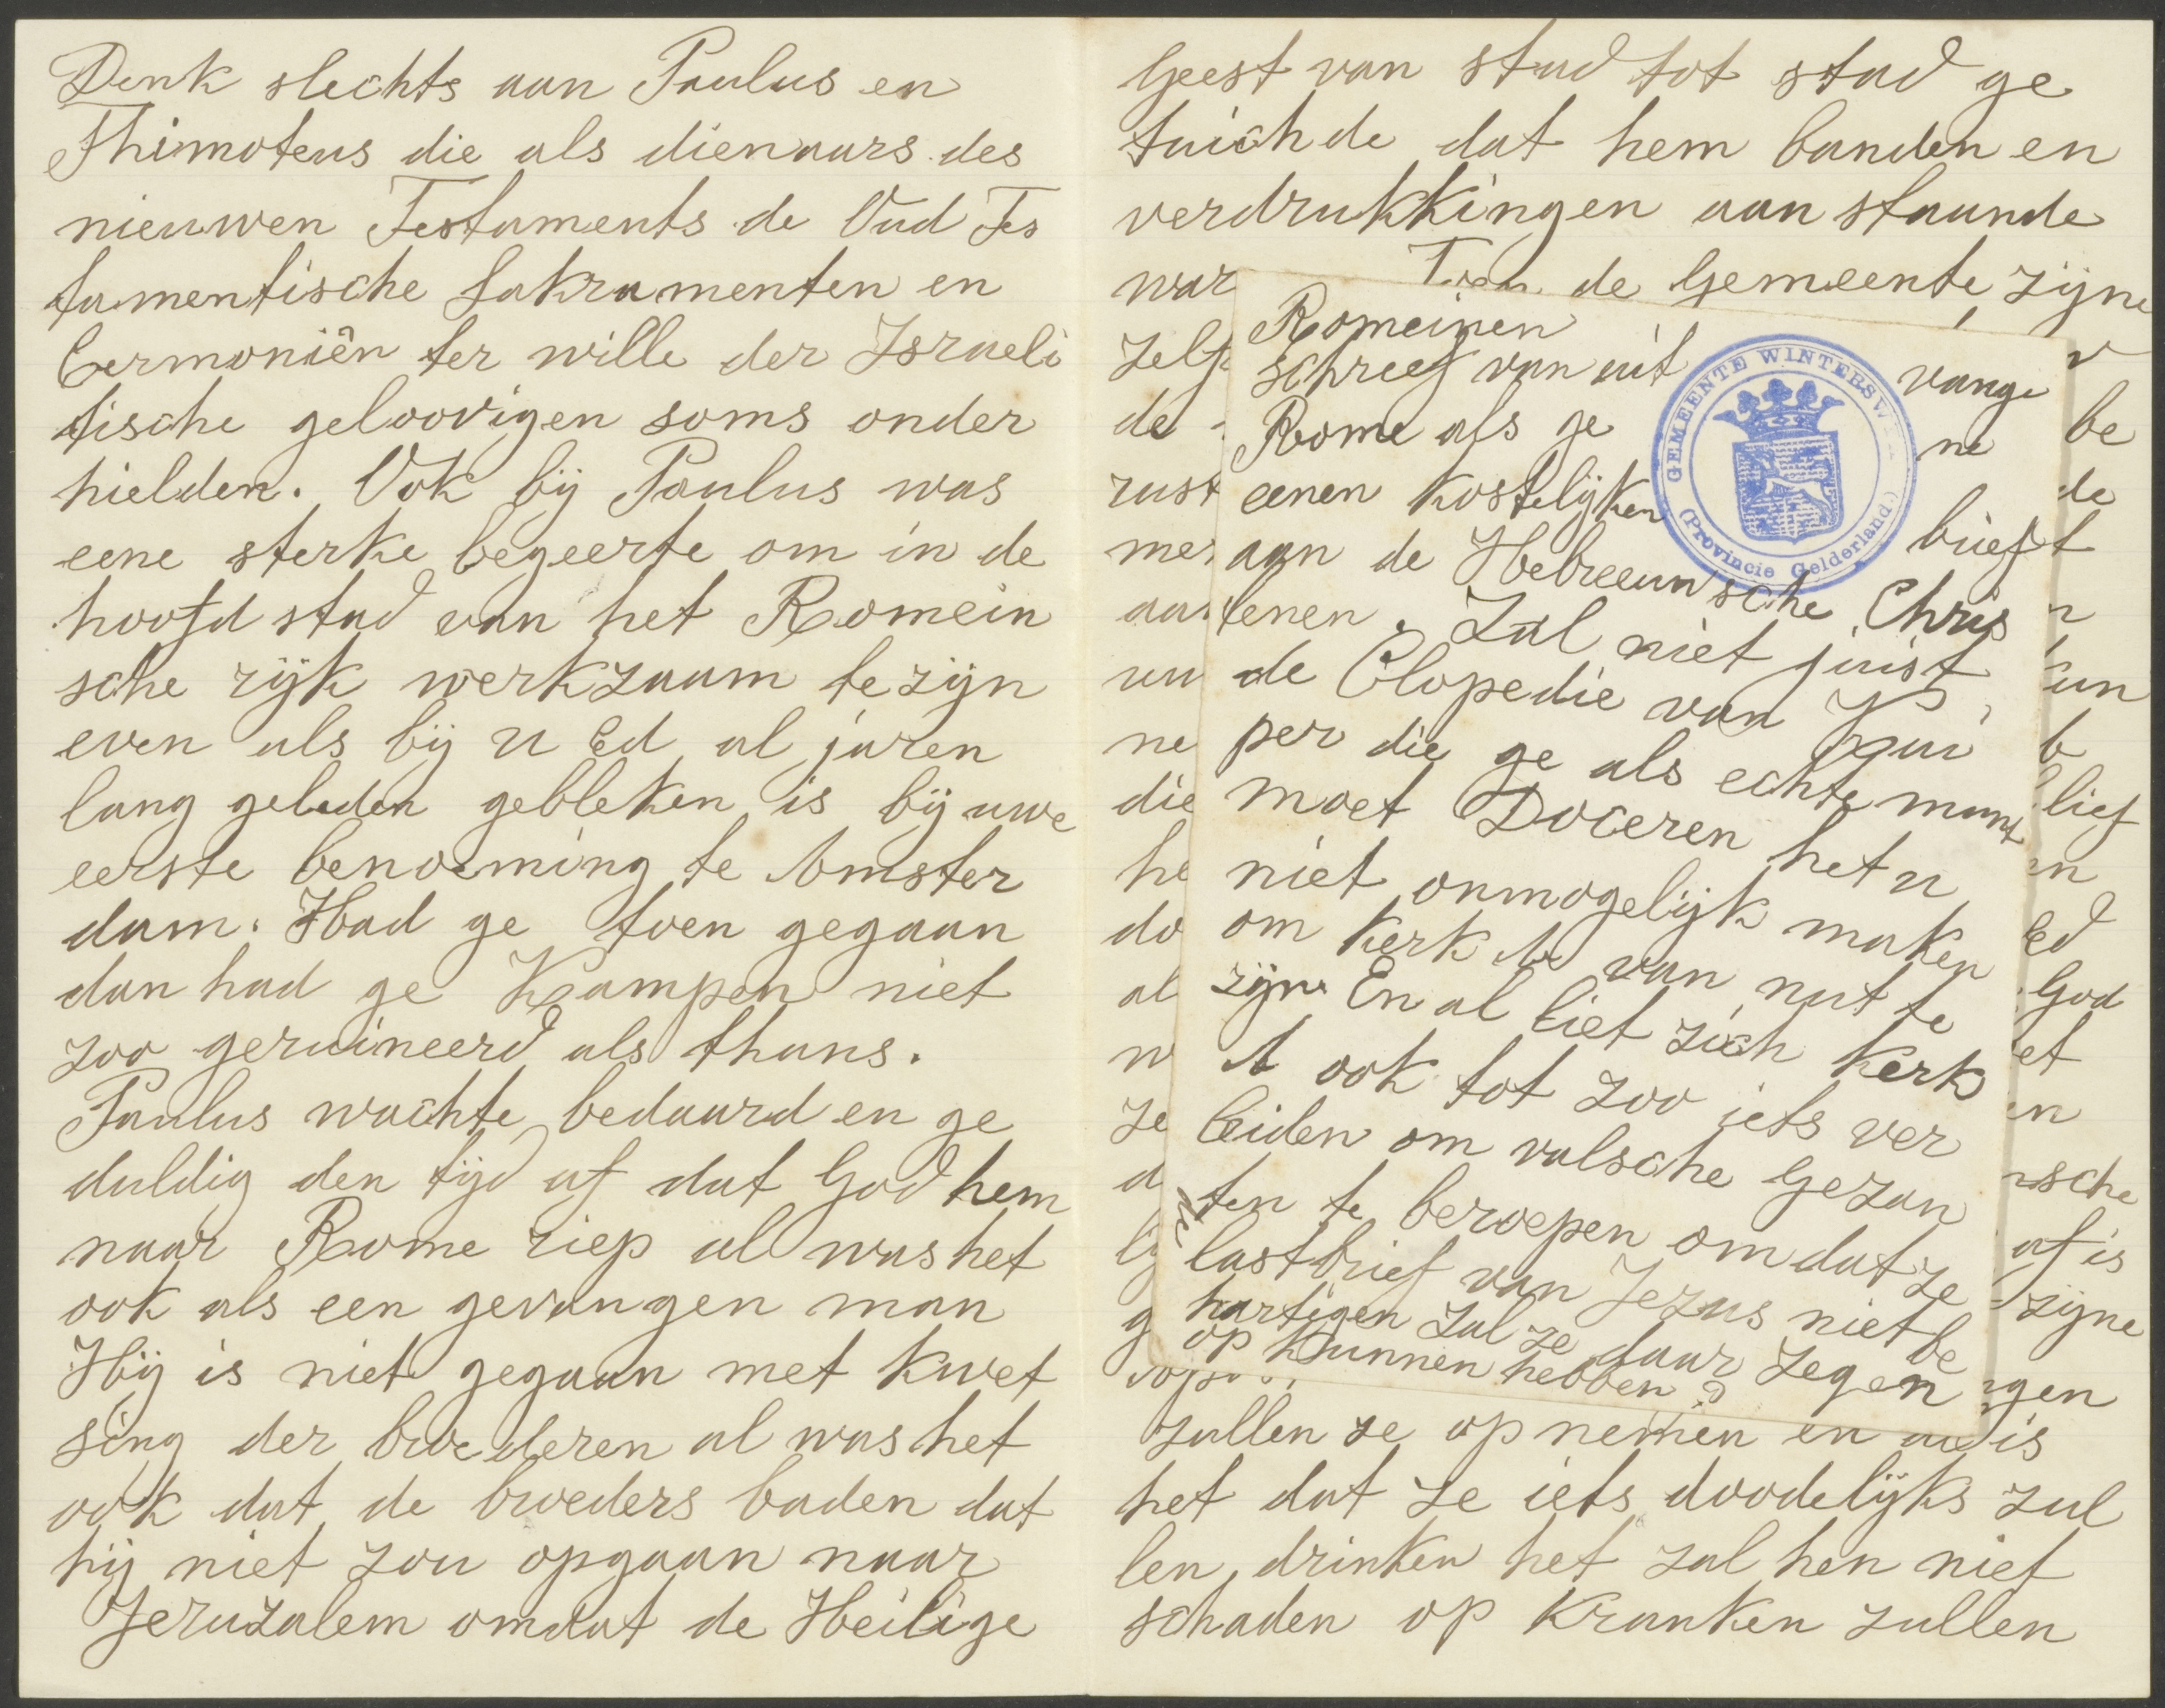 Denk slechts aan Paulus en
Thimoteus die als dienaars des
nieuwen Testaments de Oud Tes
tamentische Sakramenten en
Cermoniên ter wille der Israeli
tische geloovigen soms onder
hielden. Ook bij Paulus was
eene sterke begeerte om in de
hoofd stad van het Romein
sche rijk werkzaam te zijn
even als bij u Ed al jaren
lang geleden gebleken is bij uwe
eerste benoeming te Amster
dam. Had ge toen gegaan
dan had ge Kampen niet
zoo geruineerd als thans.
Paulus wachte bedaard en ge
duldig den tijd af dat God hem
naar Rome riep al was het
ook als een gevangen man
Hij is niet gegaan met kwet
sing der broederen al was het
ook dat de broeders baden dat
hij niet zou opgaan naar
Jeruzalem omdat de Heilige
Geest van stad tot stad ge
tuichde dat hem banden en
verdrukkingen aan staande
war de Gemeente zijne
Romeinen
schreef van uit
Rome als ge vange
ne
eenen kostelijken brief
aan de Hebreeunsche Chris
tenen. Zal niet juist
de Clopedie van Kui
per die ge als echte munt
moet Doceren het u
niet onmogelijk maken
om kerk A van nut te
zijn. En al liet zich kerk
A ook tot zoo iets ver
leiden om valsche gezan
ten te beroepen omdat ze
lastbrief van Jezus niet be
hartigen zal ze daar zegen
op kunnen hebben?
GEMEENTE WINTERSW
(Provincie Gelderland.)
zelf
de
be
rust
de
t
n
un
ne
b
die
lief
he
n
do
Ed
al
God
w
et
ze
en
d
sche
af is
g
zijne
gen
zullen ze op nemen en al is
het dat ze iets doodelijks zul
len drinken het zal hen niet
schaden op kranken zullen